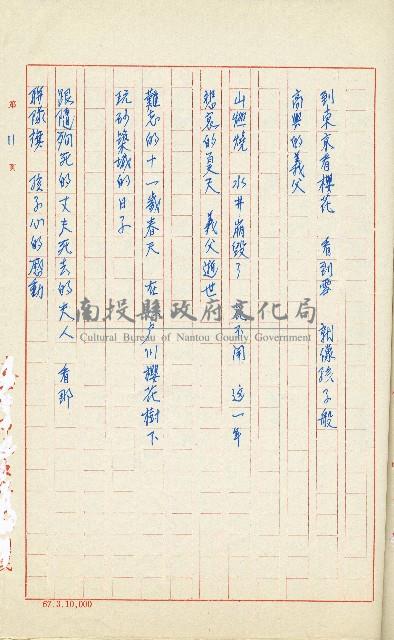 到東京看櫻花　看到雲　就像孩子般
高興的義父
山燃燒　水井崩毀了　花不開　這一年
悲哀的夏天　義父逝世
難忘的十一歲春天　在戶川櫻花樹下
玩砂築城的日子
跟隨殉死的丈夫死去的夫人　看那
聯隊旗　孩子心的感動
第 11 頁
南投縣政府文化局
Cultural Bureau of Nantou County Government
67.3.10,000